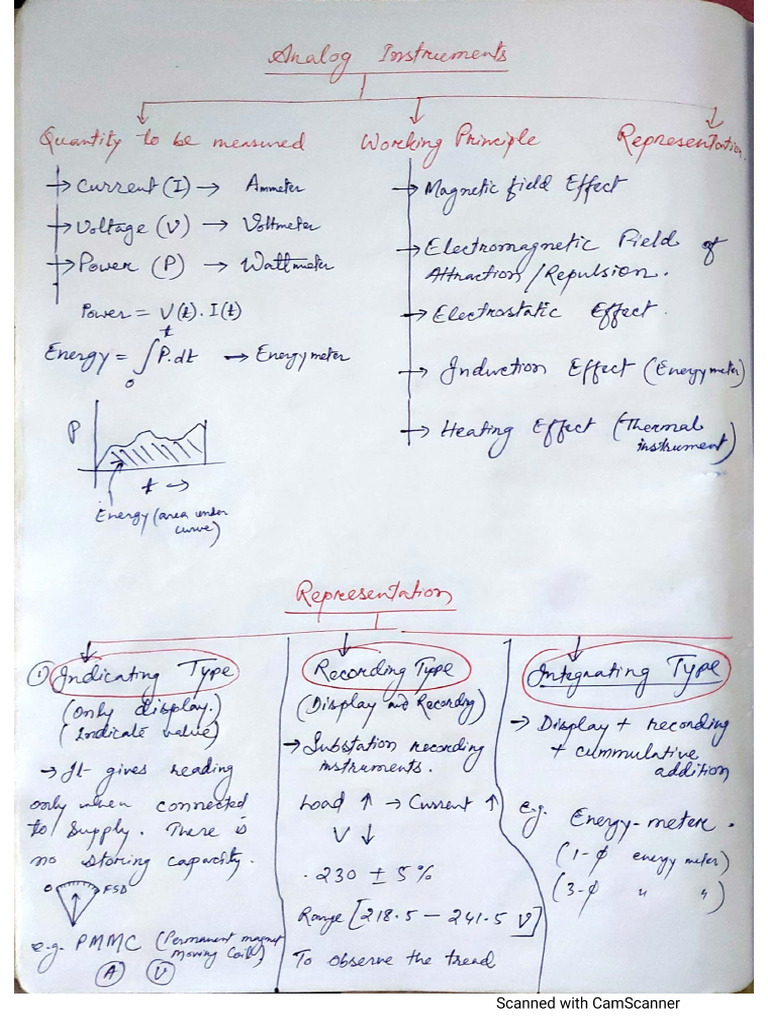 Analog Instruments
Quantity to be measured
→ Current (I) → Ammeter
→ Voltage (V) → Voltmeter
→ Power (P) → Wattmeter
Power = V(t) . I(t)
Energy = ∫₀ᵗ P.dt → Energy meter
P
t →
Energy (area under
curve)
Working Principle
→ Magnetic field Effect
→ Electromagnetic Field of
Attraction / Repulsion.
→ Electrostatic Effect.
→ Induction Effect (Energy meter)
→ Heating Effect (Thermal
instrument)
Representation
Representation
① Indicating Type
(Only display.)
(Indicate value)
→ It gives reading
only when connected
to supply. There is
no storing capacity.
0 FSD
e.g. PMMC (Permanent magnet
Moving Coil)
A V
Recording Type
(Display and Recording)
→ Substation recording
instruments.
Load ↑ → Current ↑
V ↓
. 230 ± 5%
Range [218.5 – 241.5 V]
To observe the trend
Integrating Type
→ Display + recording
+ cummulative
addition
e.g. Energy-meter.
(1-φ energy meter)
(3-φ " ")
Scanned with CamScanner